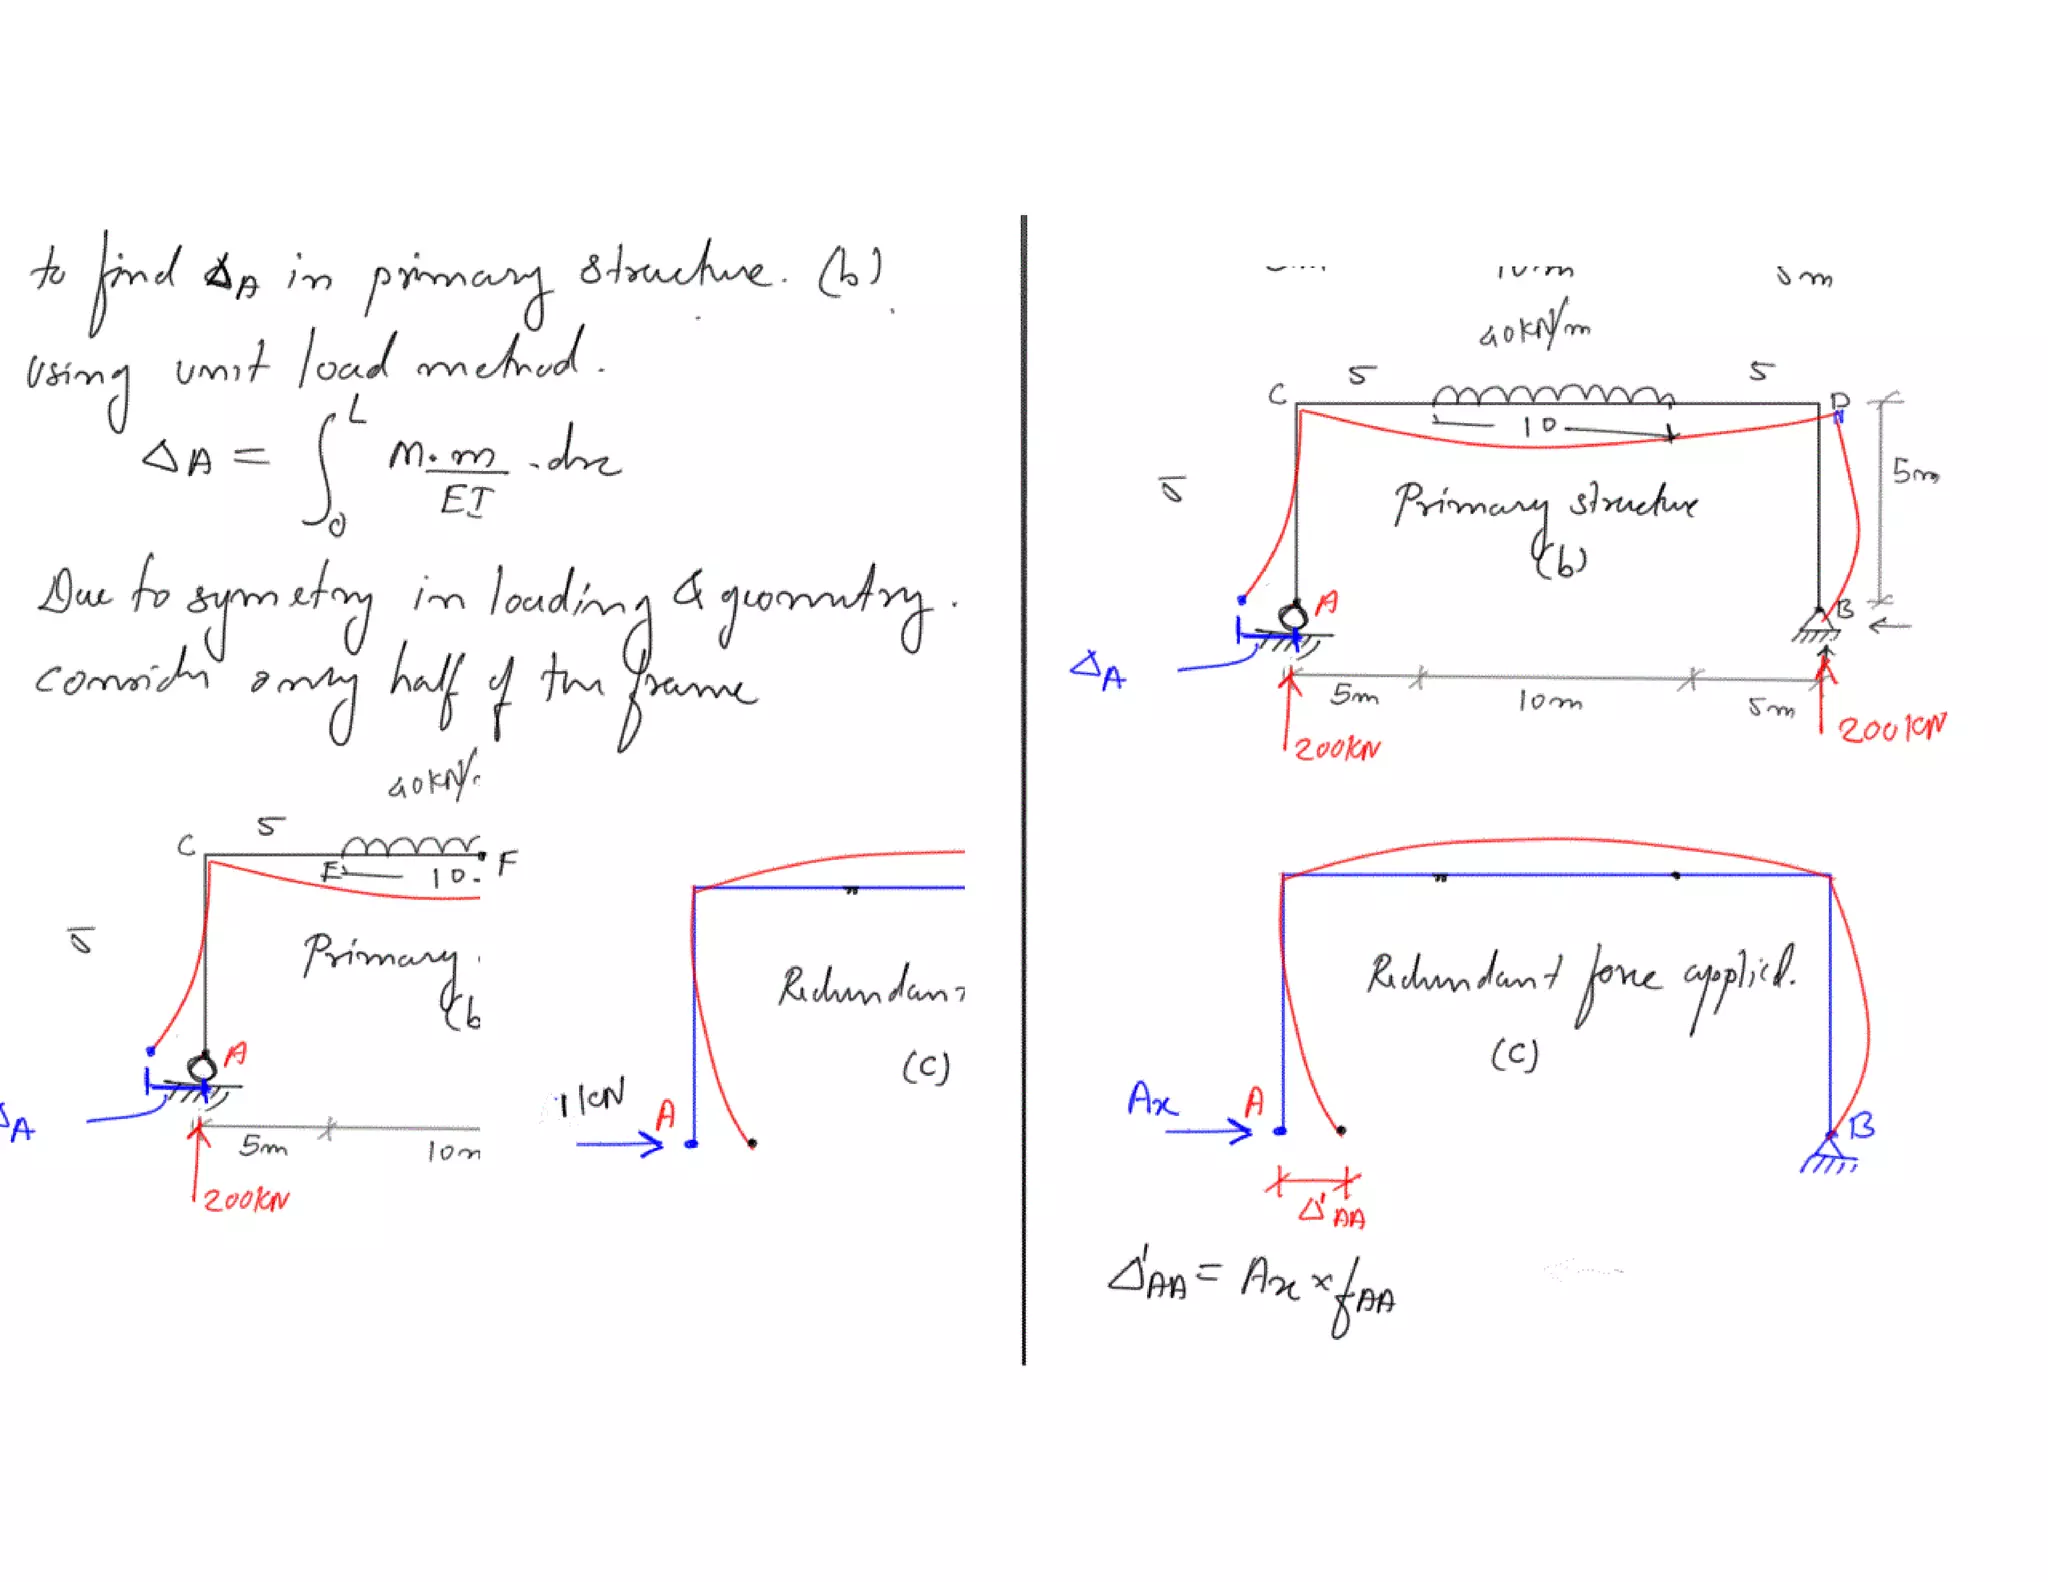 to find ΔA in primary structure. (b)
using unit load method.
ΔA = ∫₀ᴸ M.m/EI .dx
Due to symetry in loading & geometry.
consider only half of the frame
40KN/
5
C
E
10.
F
5
Primary
(b
A
ΔA
5m
10m
200KN
1KN
A
Redundant
(C)
5m
10m
5m
40KN/m
5
5
C
D
10
5
5m
Primary structure
(b)
A
B
ΔA
5m
10m
5m
200KN
200KN
Redundant force applied.
(C)
Ax
A
B
Δ'AA
Δ'AA = Ax × fAA